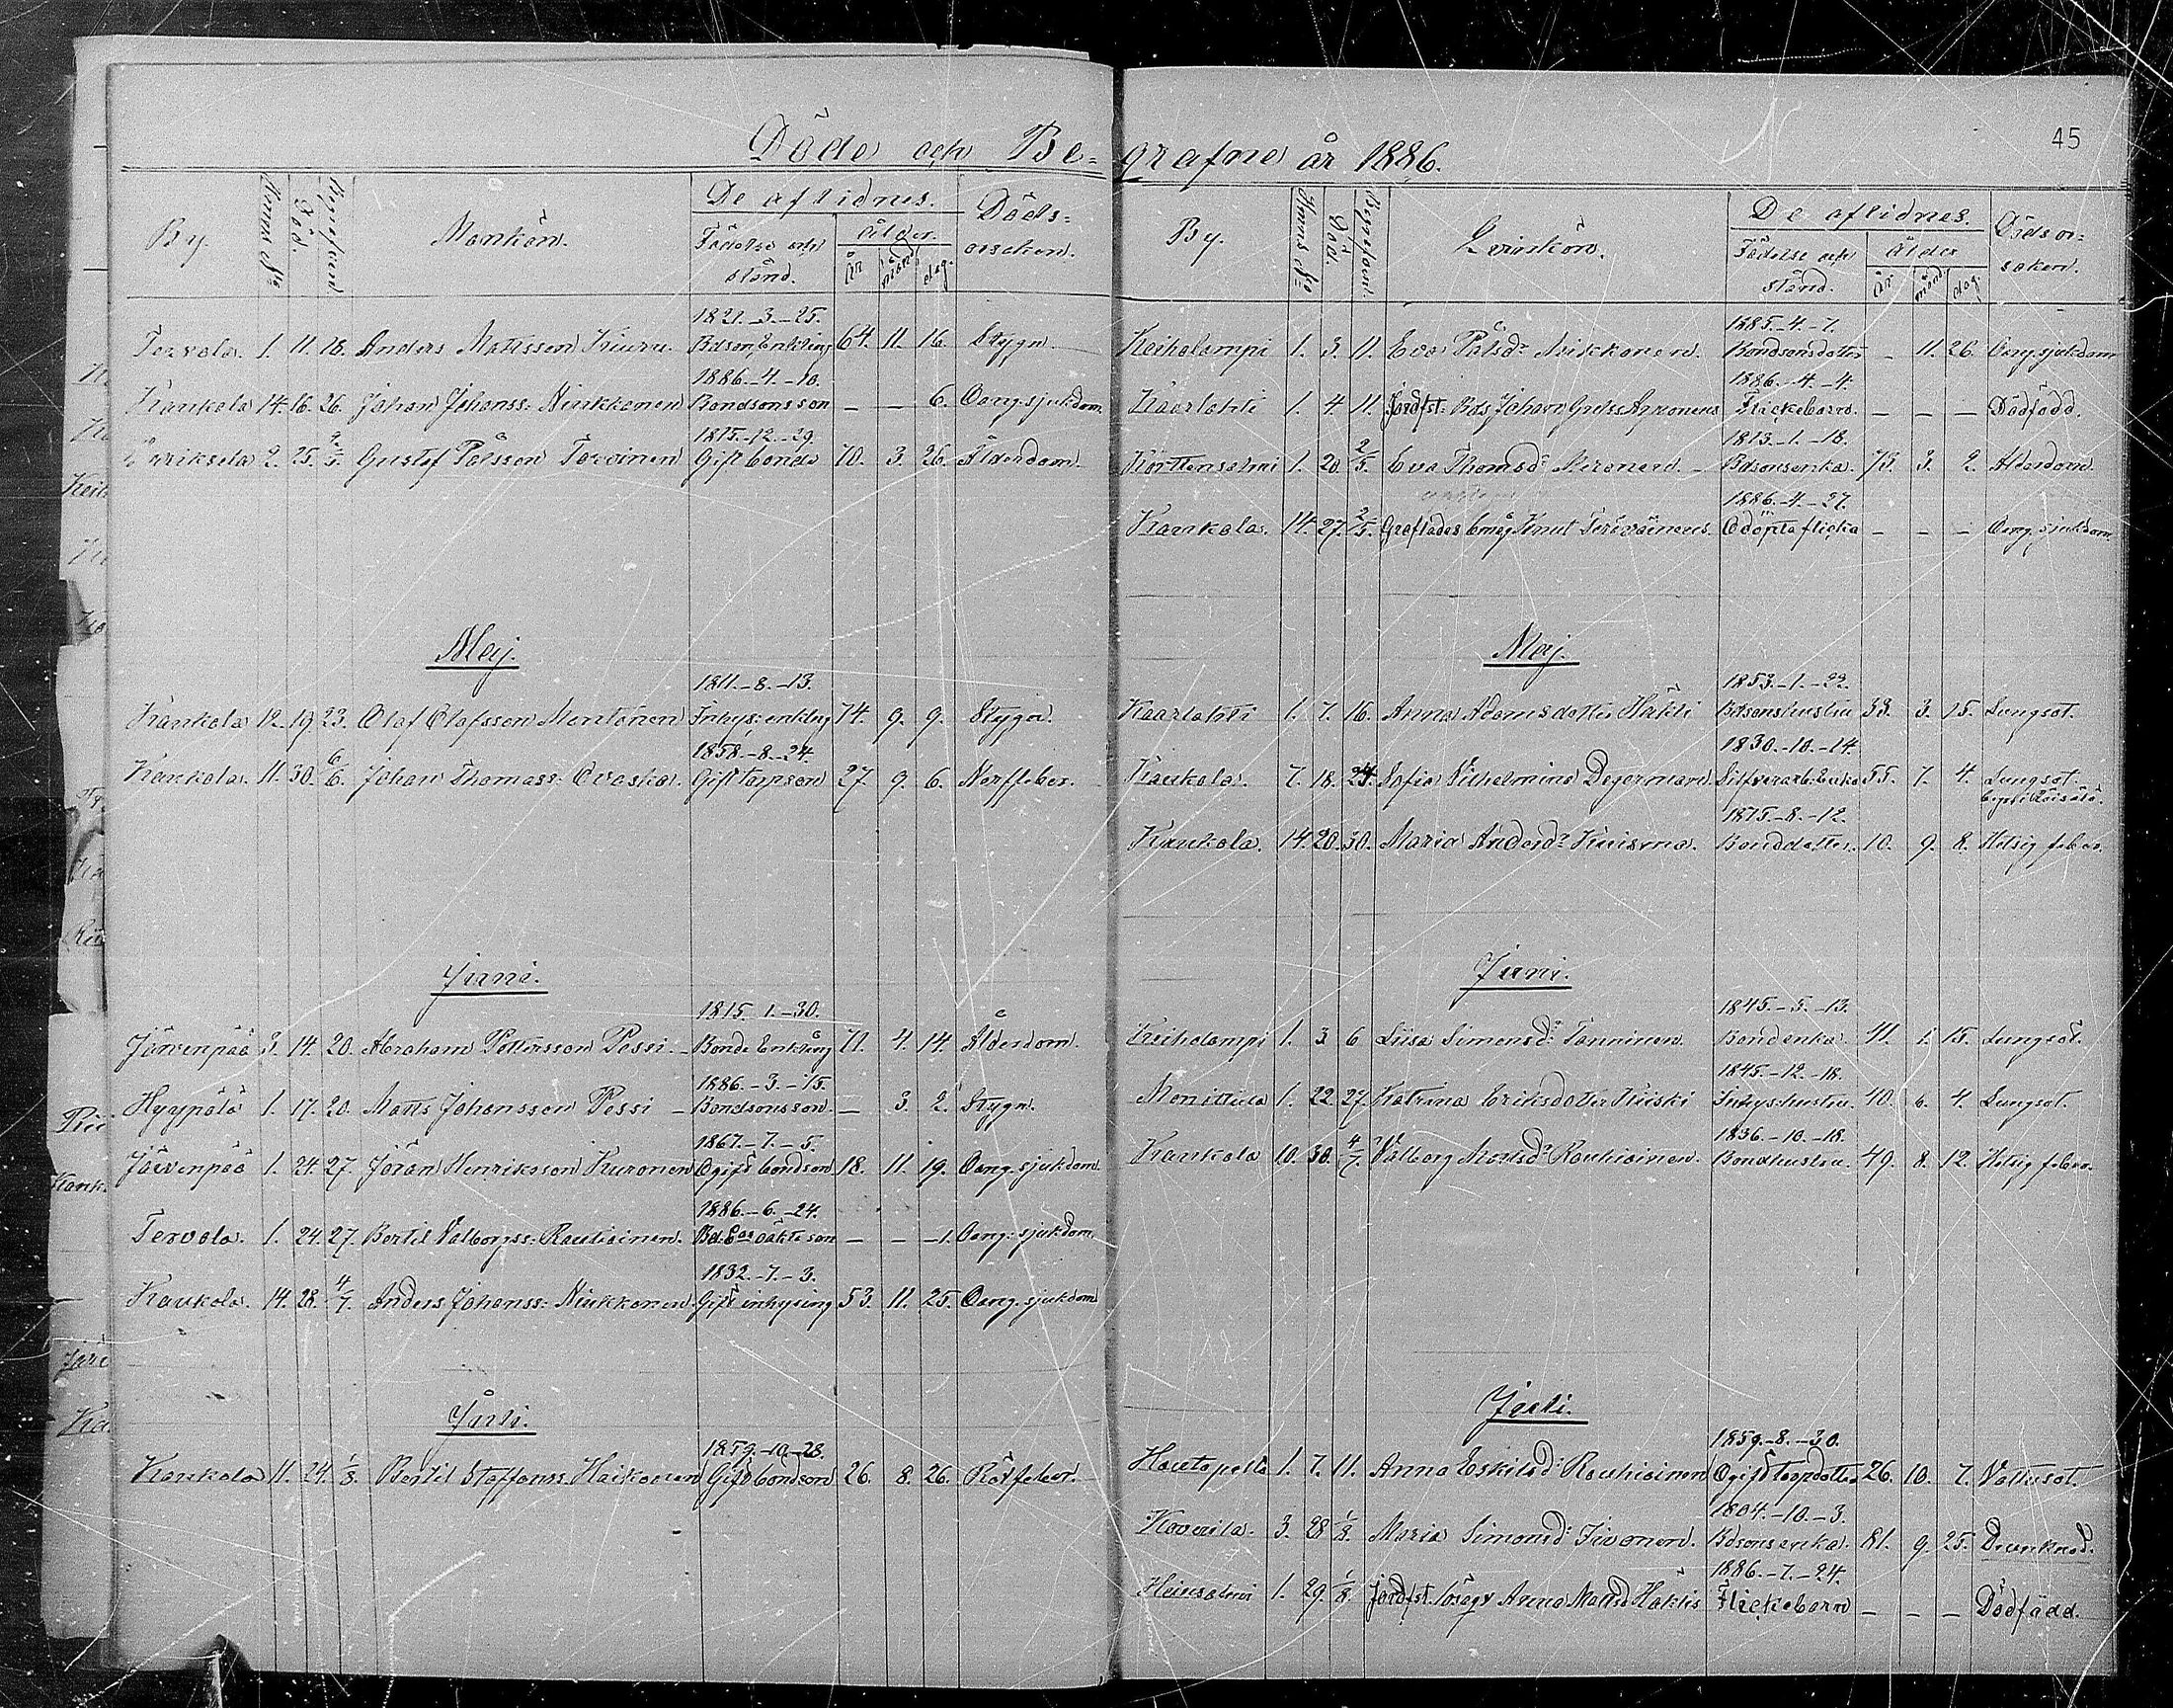 45
Döde och Be=
De aflidnes.
By.
Hemms No
Död.
Begrafven
Mankön.
Födelse och
stånd.
ålder.
År
månad
dag.
Döds=
orsaken.
1821.-3.-25.
Tervola. 1. 11. 18. Anders Mattsson Kiuru. Bdson, Enkling 64. 11. 16. Stygn.
1886.-4.-10.
Kaukola 14. 16. 26. Johan Johanss: Niukkanen Bondsonsson — — 6. Oang. sjukdom.
1815.-12.-29.
2. 25. 2/5. Gustaf Pålsson Toivainen Gift bonde 70. 3. 26. Ålderdom.
Maj.
1811.-8.-13.
Kaukola 12. 19. 23. Olaf Olafsson Montonen Inhys: enkling 74. 9. 9. Stygn.
1858.-8.-24.
Kaukola. 11. 30. 6/6. Johan Thomass: Ovaska. Gift torpson 27. 9. 6. Nerffeber.
Juni.
1815. 1.-30.
Järvenpää 3. 14. 20. Abraham Pettersson Pessi. Bonde Enkling 71. 4. 14. Ålderdom.
1886.-3.-15.
Hyypälä 1. 17. 20. Matts Johansson Pessi - Bondsonsson. — 3. 2. Stygn.
1867.-7.-5.
Järvenpää 1. 24. 27. Jöran Henriksson Kuronen Ogift bondson 18. 11. 19. Oang. sjukdom.
1886.-6.-24.
Tervola. 1. 24. 27. Bertil Valborgss: Rautiainen. oäkta son — — 1. Oang: sjukdom.
1832.-7.-3.
Kaukola. 14. 28. 4/7. Anders Johanss: Niukkanen Gift inhysing 53. 11. 25. Oang. sjukdom
Juli.
1859.-10.-28.
Kaukola 11. 24. 1/8. Bertil Staffanss. Haikonen Gift bondson 26. 8. 26. Rötfeber.
grafne år 1886.
De aflidnes.
By.
Hemms No
Död.
Begrafven.
Qvinkön.
Födelse och
stånd.
Ålder
År
månd
dag.
Dödsor=
saken.
1885.-4.-7.
Keiholampi 1. 3. 11. Eva Pålsdr Bondsonsdotter — 11. 26. Oang. sjukdom
1886.-4.-4.
Kaarlahti 1. 4. 11. Jordfst: Bds Johan Flickebarn. — — — Dödfödd.
1813.-1.-18.
Korttensalmi 1. 20. 2/5. Eva Thomsdr Mironen. - Bdsonsenka. 73. 3. 2. Ålderdom.
1886.-4.-27.
Kaukola. 14. 27. 2/5. Graflades Knut Terväinens. Odöpta flicka — — — Oang. sjukdom
Maj.
1853.-1.-22.
Kaarlahti 1. 7. 16. Anna Adamsdotter Häkli Bdsonshustru 33. 3. 15. Lungsot.
1830.-10.-14.
Kaukola. 7. 18. 24. Sofia Vilhelmina Degerman Silfverarb. Enka 55. 7. 4. Lungsot.
1875.-8.-12.
Kaukola. 14. 20. 30. Maria Andersdr Kuisma. Bonddotter. 10. 9. 8. Hetsig feber.
Juni.
1845.-5.-13.
Keiholampi 1. 3 6 Liisa Simonsdr Tanninen. Bondenka. 41. 1. 15. Lungsot.
1845.-12.-18.
1. 22. 27. Katrina Eriksdotter Kiiski Inhys:hustru. 40. 6. 4. Lungsot.
1836.-10.-18.
Kaukola 10. 30. 4/7. Valborg Rautiainen. Bondhustru. 49. 8. 12. Hetsig feber.
Juli.
1859.-8.-30.
Hautapelto 1. 7. 11. Anna Eskilsdr Rautiainen Ogift torpdotter 26. 10. 7. Vattusot.
1804.-10.-3.
Koverila. 3. 28 1/8. Maria Simonsd: Jivonen. Bdsonsenka. 81. 9. 25. Drunknad.
1886.-7.-24.
Heinsalmi 1. 29. 1/8. Jordfst. lösagr Anna Mattsd Häklis Flickebarn — — — Dödfödd.